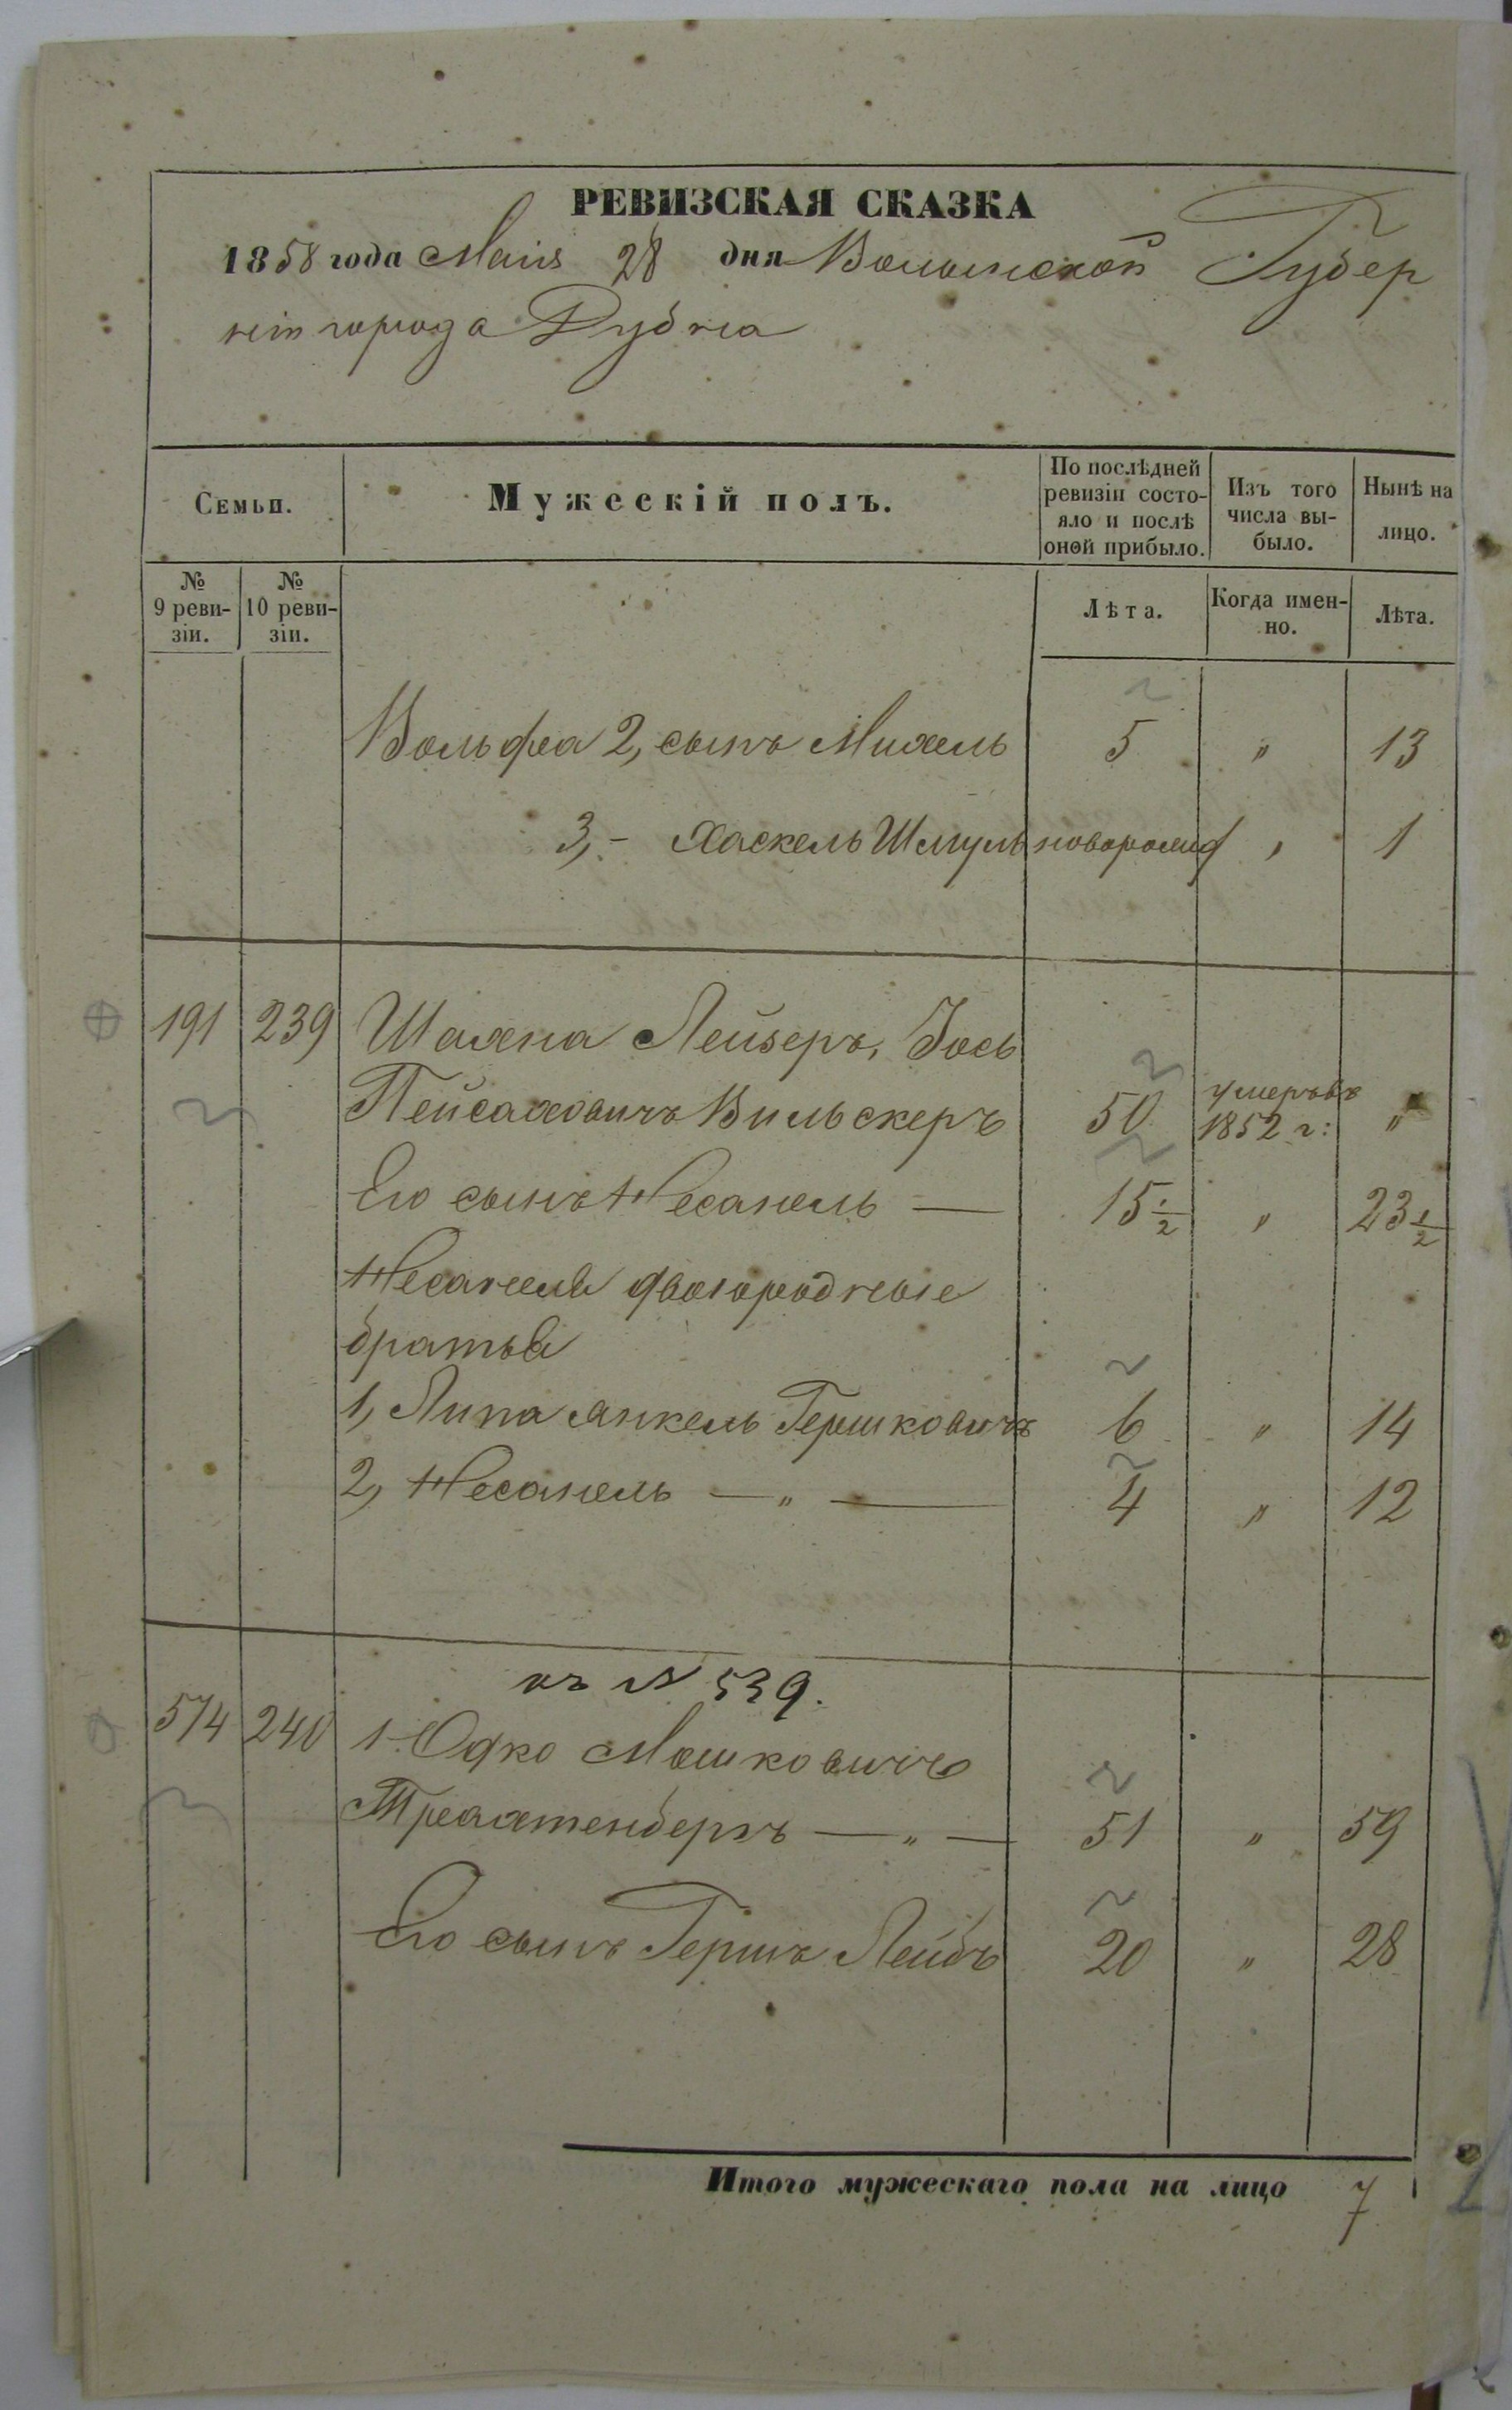 РЕВИЗСКАЯ СКАЗКА
1858 года Маія 28 дня Волынской Губер
ніи города Дубна
Семьи.
Мужескій полъ.
По послѣдней ревизіи состо-
яло и послѣ оной прибыло.
Изъ того числа вы-
было.
Нынѣ на лицо.
№ 9 реви-
зіи.
№ 10 реви-
зіи.
Лѣта.
Когда имен-
но.
Лѣта.
Вольфа 2, сынъ Михель 5 " 13
3, - Хаскель Шмуль новорожд , 1
191 239 Шахна Лейзеръ, Іось
Пейсаховичъ Вильскеръ 50 умеръ въ 1852 г: "
Его сынъ Несанель — 15 1/2 " 23 1/2
Несанеля двоюродные
братья
1, Липа Янкель Гершковичъ 6 " 14
2, Несанель — " — 4 " 12
къ № 539.
574 240 1 Юдко Мошковичъ
Трахтенбергъ — " — 51 " 59
Его сынъ Гершъ Лейбъ 20 " 28
Итого мужескаго пола на лицо 7